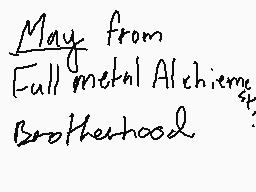 May from
Full metal Alchieme
st?
Brotherhood